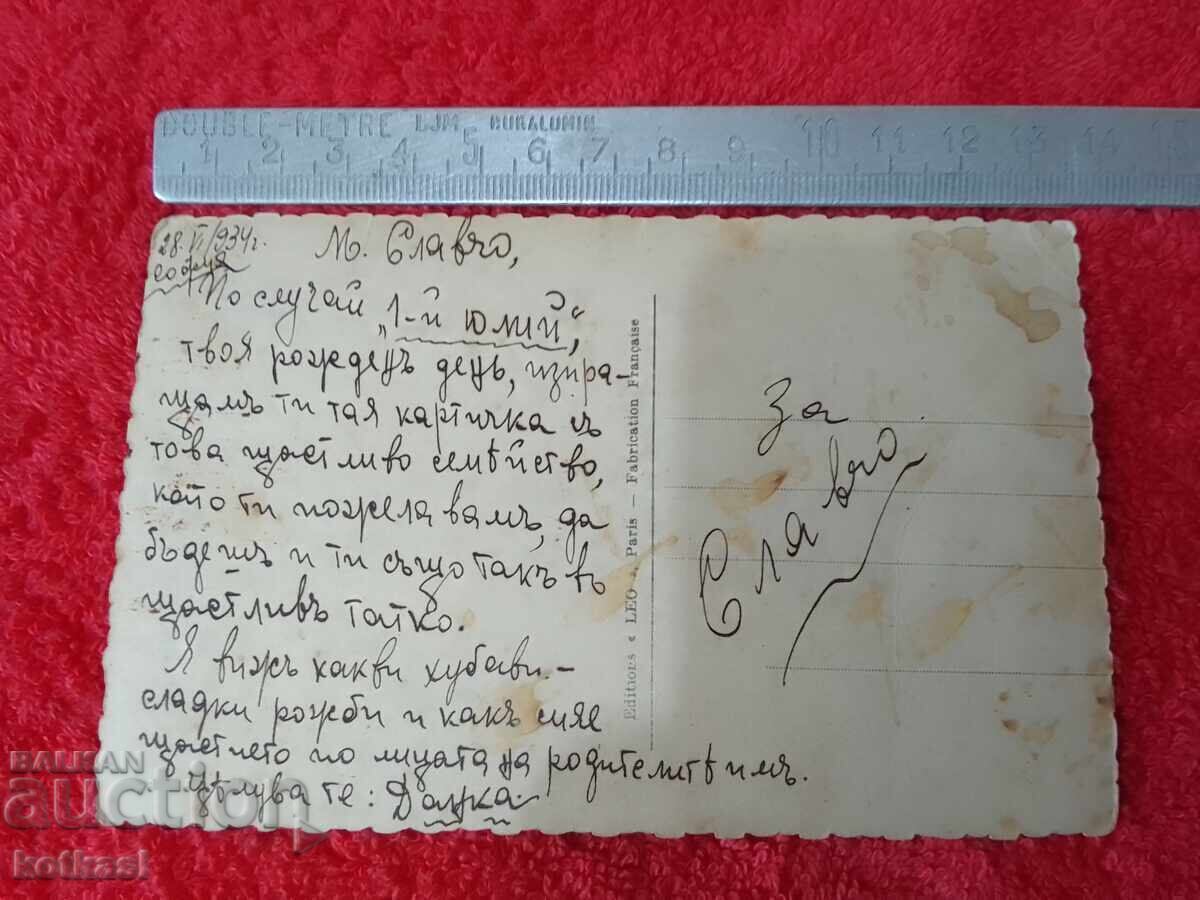 DOUBLE-METRE LJM DURALUMIN
1 2 3 4 5 6 7 8 9 10 11 12 13 14 15
28.VI/934г.
София
М. Славчо,
По случай „1-й юлий“,
твоя рожденъ день, изпра-
щамъ ти тая картичка съ
това щастливо семѣйство,
който ти пожелавамъ, да
бѫдешъ и ти също такъвъ
щастливъ татко.
Я вижъ какви хубави -
сладки рожби и какъ сияе
щастието по лицата на родителитѣ имъ.
Цѣлува те: Данка
Editions « LEO » Paris — Fabrication Française
За
Славчо
BALKAN
auction
kotkasl